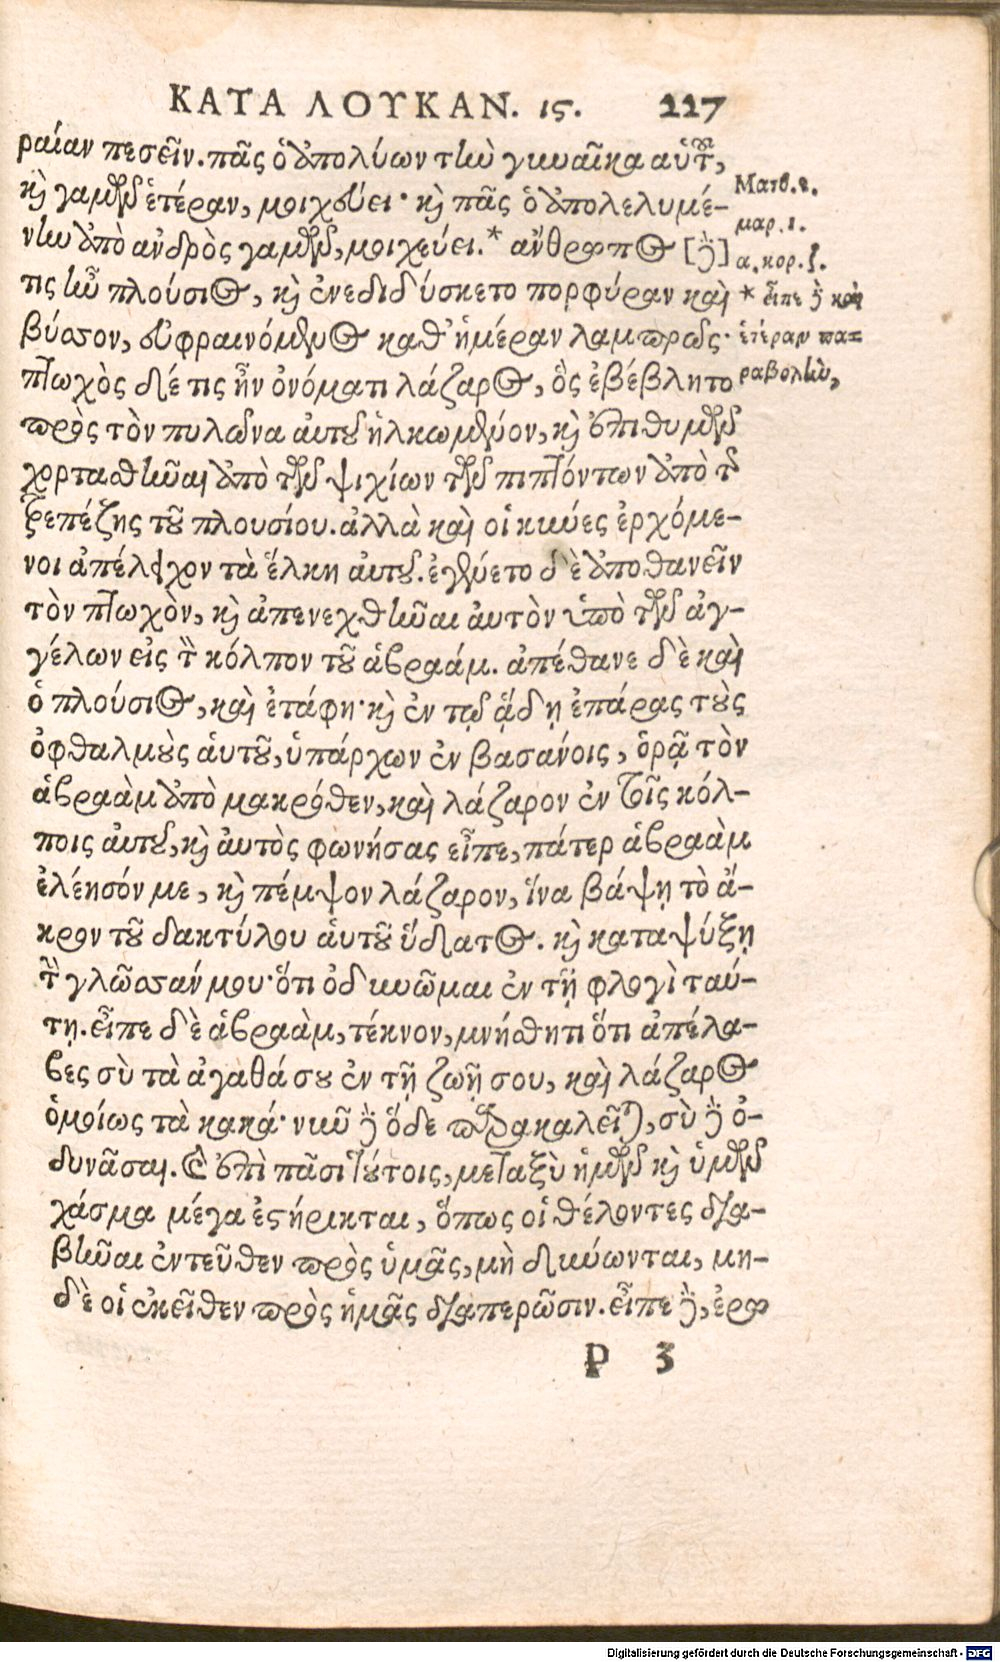 ΚΑΤΑ ΛΟΥΚΑΝ. ις. 227
ραίαν πεσεῖν. πᾶς ὁ ἀπολύων τὴν γυναῖκα αὑτοῦ,
καὶ γαμῶν ἑτέραν, μοιχεύει· καὶ πᾶς ὁ ἀπολελυμέ-
νην ἀπὸ ἀνδρὸς γαμῶν, μοιχεύει.* ἄνθρωπος [δὲ]
τις ἦν πλούσιος, καὶ ἐνεδιδύσκετο πορφύραν καὶ
βύσσον, εὐφραινόμενος καθ' ἡμέραν λαμπρῶς·
πτωχὸς δέ τις ἦν ὀνόματι λάζαρος, ὃς ἐβέβλητο
πρὸς τὸν πυλῶνα αὐτοῦ ἡλκωμένον, καὶ ἐπιθυμῶν
χορτασθῆναι ἀπὸ τῶν ψιχίων τῶν πιπτόντων ἀπὸ τῆς
τραπέζης τοῦ πλουσίου. ἀλλὰ καὶ οἱ κύνες ἐρχόμε-
νοι ἀπέλειχον τὰ ἕλκη αὐτοῦ. ἐγένετο δὲ ἀποθανεῖν
τὸν πτωχὸν, καὶ ἀπενεχθῆναι αὐτὸν ὑπὸ τῶν ἀγ-
γέλων εἰς τὸν κόλπον τοῦ ἀβραάμ. ἀπέθανε δὲ καὶ
ὁ πλούσιος, καὶ ἐτάφη· καὶ ἐν τῷ ᾅδῃ ἐπάρας τοὺς
ὀφθαλμοὺς αὑτοῦ, ὑπάρχων ἐν βασάνοις, ὁρᾷ τὸν
ἀβραὰμ ἀπὸ μακρόθεν, καὶ λάζαρον ἐν τοῖς κόλ-
ποις αὐτοῦ, καὶ αὐτὸς φωνήσας εἶπε, πάτερ ἀβραὰμ
ἐλέησόν με, καὶ πέμψον λάζαρον, ἵνα βάψῃ τὸ ἄ-
κρον τοῦ δακτύλου αὑτοῦ ὕδατος. καὶ καταψύξῃ
τὴν γλῶσσάν μου· ὅτι ὀδυνῶμαι ἐν τῇ φλογὶ ταύ-
τῃ. εἶπε δὲ ἀβραὰμ, τέκνον, μνήσθητι ὅτι ἀπέλα-
βες σὺ τὰ ἀγαθά σου ἐν τῇ ζωῇ σου, καὶ λάζαρος
ὁμοίως τὰ κακά· νῦν δὲ ὅδε παρακαλεῖται, σὺ δὲ ὀ-
δυνᾶσαι. Καὶ ἐπὶ πᾶσι τούτοις, μεταξὺ ἡμῶν καὶ ὑμῶν
χάσμα μέγα ἐστήρικται, ὅπως οἱ θέλοντες δια-
βῆναι ἐντεῦθεν πρὸς ὑμᾶς, μὴ δύνωνται, μη-
δὲ οἱ ἐκεῖθεν πρὸς ἡμᾶς διαπερῶσιν. εἶπε δὲ, ἐρω
Ρ 3
Ματθ. ε.
μαρ. ι.
α. κορ. ζ.
* εἶπε δὲ καὶ
ἑτέραν πα-
ραβολὴν,
Digitalisierung gefördert durch die Deutsche Forschungsgemeinschaft - DFG